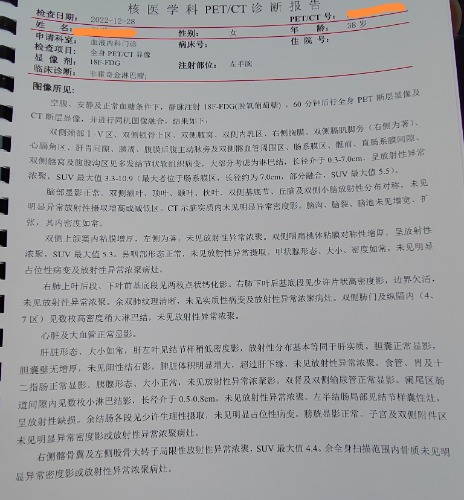 核医学科PET/CT诊断报告
检查日期： 2022-12-28 PET/CT号：
姓 名： 性别： 女 年 龄： 38岁
申请科室： 血液内科门诊 病床号： 住 院 号：
检查项目： 全身PET/CT显像
显 像 剂： 18F-FDG 注射部位： 左手腕
临床诊断： 非霍奇金淋巴瘤；
图像所见：
空腹、安静及正常血糖条件下，静脉注射18F-FDG(脱氧葡萄糖)，60分钟后行全身PET断层显像及
CT断层显像，并进行同机图像融合，结果如下：
双侧颈部Ⅰ-Ⅴ区、双侧锁骨上区、双侧腋窝、双侧内乳区、右侧胸膜、双侧膈肌脚旁（右侧为著）、
心膈角区、肝胃间隙、脾周、腹膜后腹主动脉旁及双侧髂血管周围区、肠系膜区、骶前、直肠系膜间隙、
双侧髂窝及腹股沟区见多发结节状软组织病变，大部分考虑为淋巴结，长径介于0.3-7.0cm，呈放射性异常
浓聚，SUV最大值3.3-10.9（最大者位于肠系膜区，长径约为7.0cm，部分融合，SUV最大值5.5）。
脑部显影正常，双侧额叶、顶叶、颞叶、枕叶、双侧基底节、丘脑及双侧小脑放射性分布对称，未见
明显异常放射性摄取增高或减低区，CT示脑实质内未见明显异常密度影，脑沟、脑裂、脑池未见增宽、扩
张，其内密度如常。
双侧上颌窦内粘膜增厚，左侧为著，未见放射性异常浓聚。双侧咽扁桃体粘膜对称性增厚，呈放射性
浓聚，SUV最大值5.3。鼻咽部形态正常，未见放射性异常摄取。甲状腺形态、大小、密度如常，未见明显
占位性病变及放射性异常浓聚病灶。
右肺上叶后段、下叶前基底段见两枚点状钙化影。右肺下叶后基底段见少许片状高密度影，边界欠清，
未见放射性异常浓聚。余双肺纹理清晰，未见实质性病变及放射性异常浓聚病灶。双侧肺门及纵隔内（4、
7区）见数枚高密度稍大淋巴结，未见放射性异常浓聚。
心脏及大血管正常显影。
肝脏形态、大小如常，肝左叶见结节样稍低密度影，放射性分布基本等同于肝实质。胆囊正常显影，
胆囊壁无增厚，未见阳性结石影。脾脏体积明显增大，超过肝下缘，未见放射性异常浓聚。食管、胃及十
二指肠正常显影。胰腺形态、大小正常，未见放射性异常浓聚影。双肾及双侧输尿管正常显影。阑尾区肠
道间隙内见数枚小淋巴结影，长径介于0.5-0.8cm，未见放射性浓聚。左半结肠局部见结节样囊性灶，
呈放射性缺损。余结肠各段见少许生理性摄取，未见明显占位性病变。膀胱显影正常。子宫及双侧附件区
未见明显异常密度影或放射性异常浓聚病灶。
右侧髂骨翼及左侧股骨大转子局限性放射性异常浓聚，SUV最大值4.4。余全身扫描范围内骨质未见明
显异常密度影或放射性异常浓聚病灶。